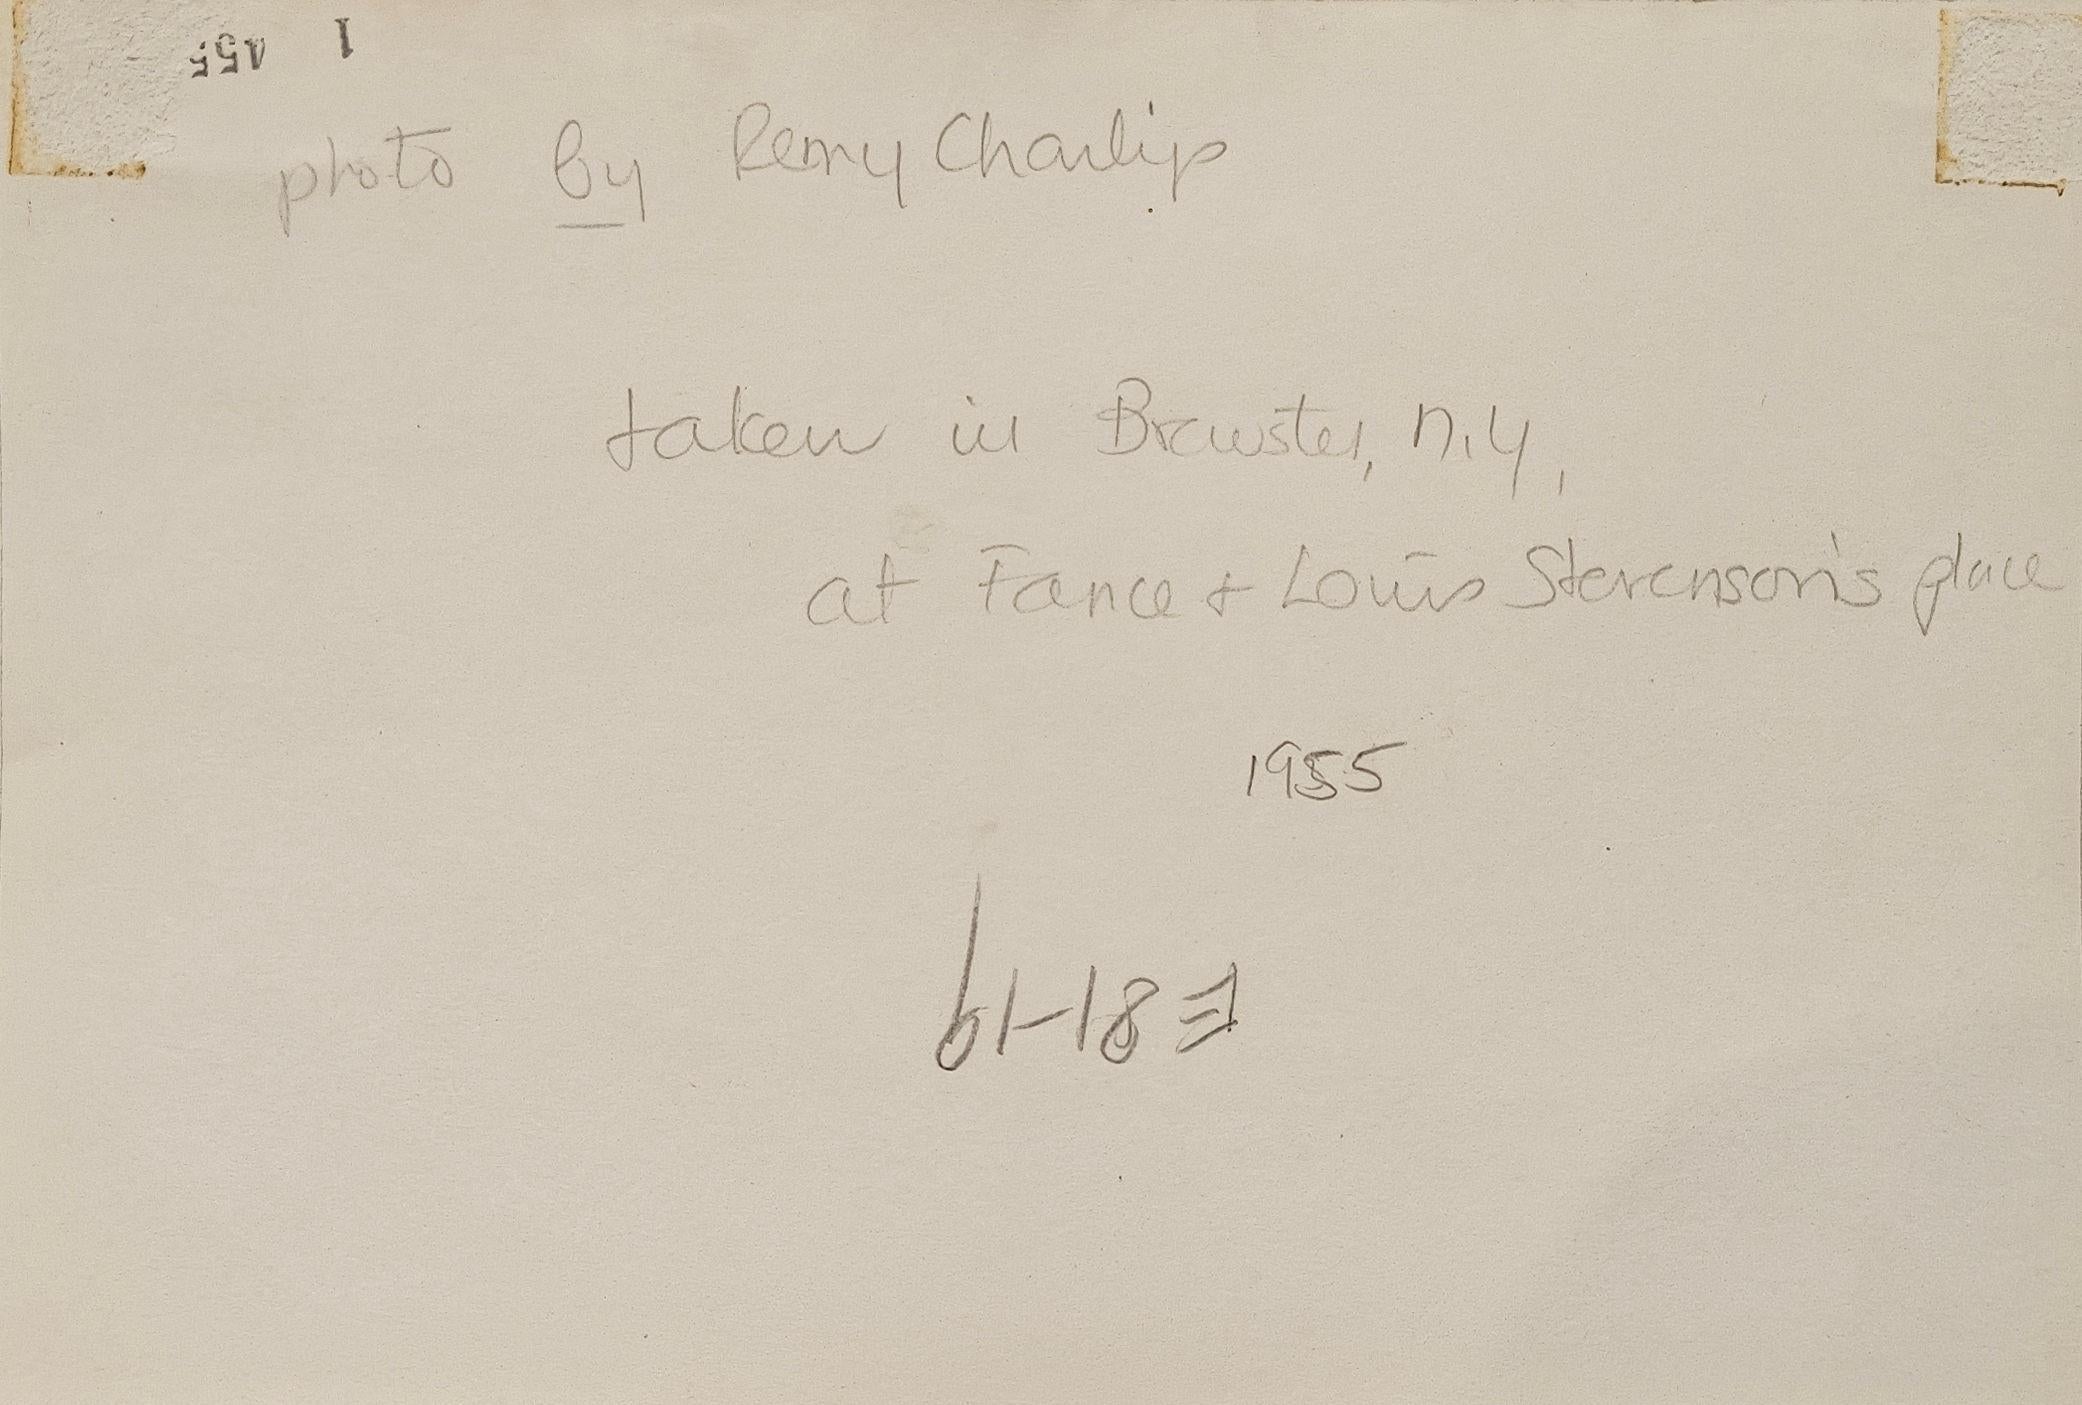 1 455
photo by Remy Charlip
taken in Brewster, N.Y,
at Fance + Louis Stevenson's place
1955
F81-19